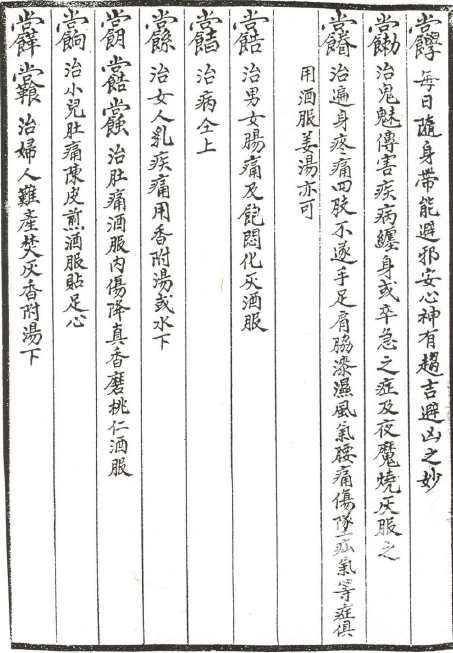 每日隨身帶能避邪安心神有趨吉避凶之妙
治鬼魅傳害疾病纏身或卒急之症及夜魔燒灰服之
治遍身疼痛四肢不遂手足肩脇滲濕風氣腰痛傷墜疝氣等症俱
用酒服姜湯亦可
治男女腸痛及飽悶化灰酒服
治病仝上
治女人乳疾痛用香附湯或水下
治肚痛酒服內傷降真香磨桃仁酒服
治小兒肚痛陳皮煎酒服貼足心
治婦人難產焚灰香附湯下